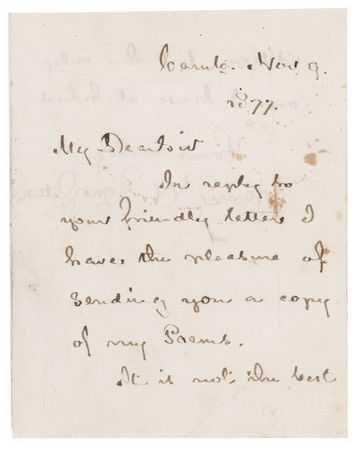 Camb. Nov 9.
1877.
My Dear Sir
In reply to
your friendly letter I
have the pleasure of
sending you a copy
of my Poems.
It is not the best